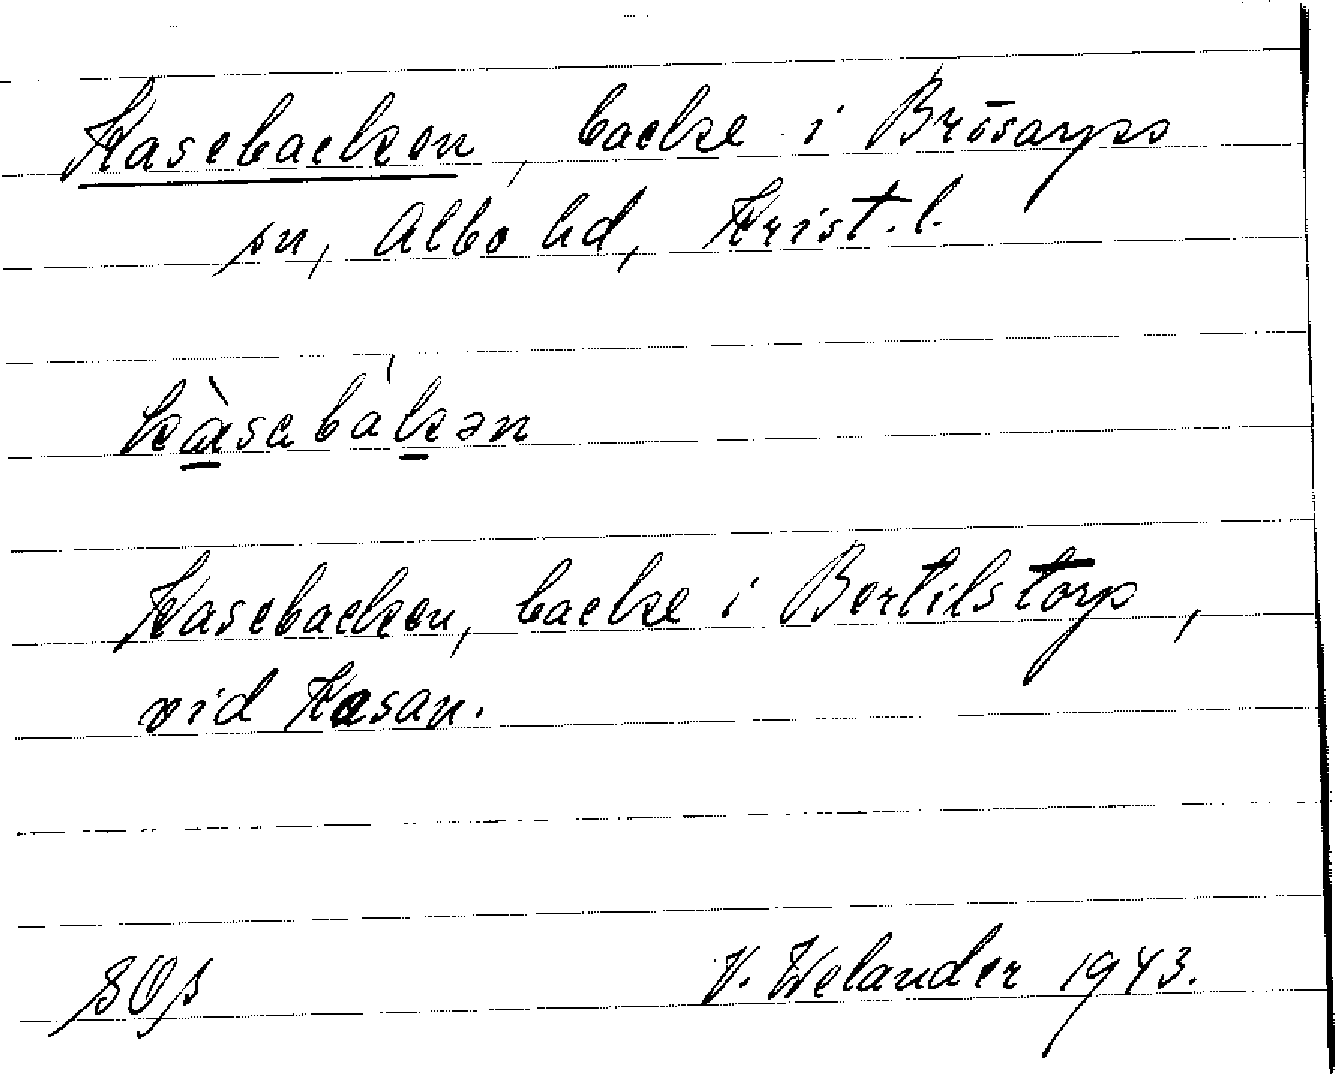 Kasebacken, backe i Brösarps
sn, Albo hd, Krist. l.
Kasebacken, backe i Bertilstorp,
vid Kasan.
V. Welander 1943.